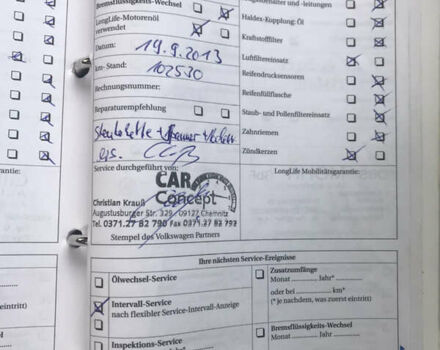 Bremsflüssigkeits-Wechsel
LongLife-Motorenöl
verwendet
Datum: 19.9.2013
km-Stand: 102530
Rechnungsnummer:
Reparaturempfehlung
Steuerkette + Spanner +
Service durchgeführt von:
CAR
Concept
Christian Krauß
Augustusburger Str. 329, 09127 Chemnitz
Tel. 0371.27 82 790 Fax 0371.27 82 792
Stempel des Volkswagen Partners
-leitungen
Haldex-Kupplung: Öl
Kraftstofffilter
Luftfiltereinsatz
Reifendrucksensoren
Reifenfüllflasche
Staub- und Pollenfiltereinsatz
Zahnriemen
Zündkerzen
LongLife Mobilitätsgarantie:
Ihre nächsten Service-Ereignisse
Ölwechsel-Service
Intervall-Service
nach flexibler Service-Intervall-Anzeige
Inspektions-Service
Zusatzumfänge
Monat Jahr*
oder bei km*
(* je nachdem, was zuerst eintritt)
Bremsflüssigkeits-Wechsel
Monat Jahr
arantie:
eintritt)